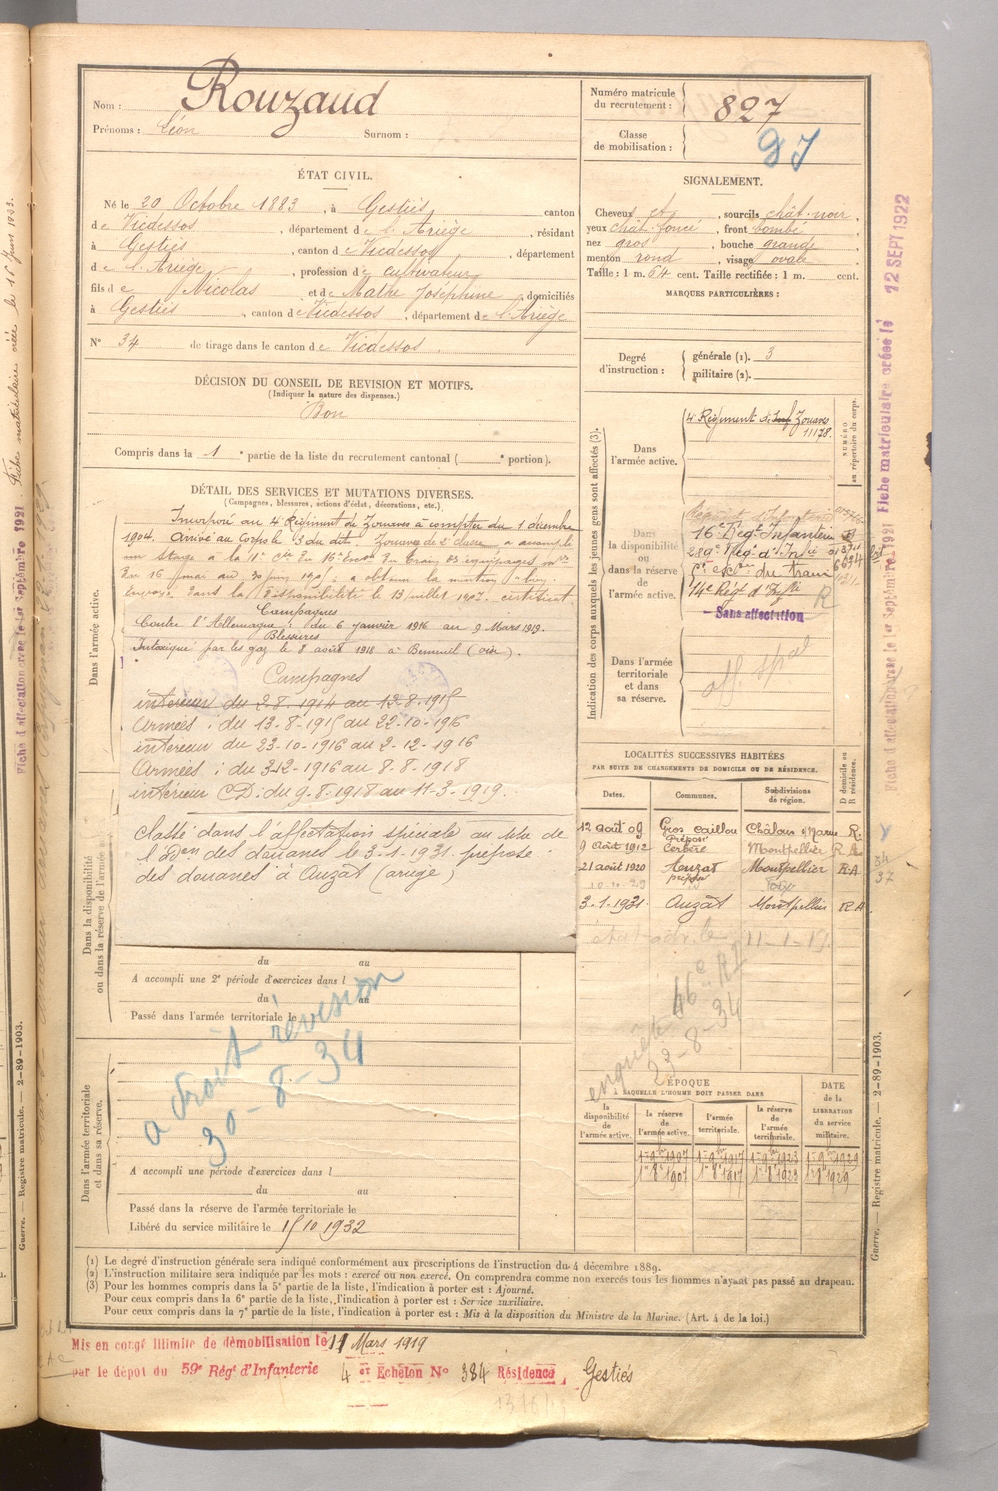 Nom : Rouzaud
Prénoms : Léon Surnom :
ÉTAT CIVIL.
Né le 20 Octobre 1883, à Gestiès canton
de Vicdessos, département de l'Ariège, résidant
à Gestiès, canton de Vicdessos, département
de l'Ariège, profession de cultivateur
fils de Nicolas et de Mathe Joséphine, domiciliés
à Gestiès, canton de Vicdessos, département de l'Ariège
N° 34 de tirage dans le canton de Vicdessos.
DÉCISION DU CONSEIL DE REVISION ET MOTIFS.
(Indiquer la nature des dispenses.)
Bon
Compris dans la 1e partie de la liste du recrutement cantonal ( e portion).
DÉTAIL DES SERVICES ET MUTATIONS DIVERSES.
(Campagnes, blessures, actions d'éclat, décorations, etc.)
Dans l'armée active.
Incorporé au 4e Régiment de Zouaves à compter du 1 décembre
1904. Arrivé au Corps le 3 du dit. Zouave de 2e classe. a accompli
un stage à la 1e Cie du 16e Escon du train des équipages mres
du 16 mai au 30 juin; a obtenu la mention
Envoyé dans la disponibilité le 13 juillet 1907. certificat
Campagnes
Contre l'Allemagne : du 6 janvier 1916 au 9 Mars 1919.
Blessures
Intoxiqué par les gaz le 8 août 1918 à (oise).
Campagnes
intérieur du 2-8-1914 au 12-8-1915
Armées : du 13-8-1915 au 22-10-1916
intérieur du 23-10-1916 au 2-12-1916
Armées : du 3-12-1916 au 8-8-1918
intérieur CD. du 9-8-1918 au 11-3-1919.
Dans la disponibilité ou dans la réserve de l'armée a
Classé dans l'affectation spéciale au titre de
l'adon des douanes le 3-1-1931. préposé
des douanes à Auzat (ariège)
du au
A accompli une 2e période d'exercices dans l
du au
Passé dans l'armée territoriale le
a droit révision
30-8-34
Dans l'armée territoriale et dans sa réserve.
A accompli une période d'exercices dans l
du au
Passé dans la réserve de l'armée territoriale le
Libéré du service militaire le 15 10 1932
Numéro matricule du recrutement : 827
Classe de mobilisation :
SIGNALEMENT.
Cheveux et, sourcils chât-noir,
yeux chât. foncé, front bombé
nez gros, bouche grande
menton rond, visage ovale.
Taille : 1 m. 64 cent. Taille rectifiée : 1 m. cent.
MARQUES PARTICULIÈRES :
Degré d'instruction : générale (1). 3
militaire (2).
Indication des corps auxquels les jeunes gens sont affectés (3).
NUMÉRO au répertoire du corps.
Dans l'armée active.
4e Régiment de Zouaves
11178.
Dans la disponibilité ou dans la réserve de l'armée active.
Régiment d'Infanterie
16e Régt Infanterie
Régt d'Infie
du train
14e Régt d'Infie R
Sans affectation
Dans l'armée territoriale et dans sa réserve.
aff. spal
LOCALITÉS SUCCESSIVES HABITÉES
PAR SUITE DE CHANGEMENTS DE DOMICILE OU DE RÉSIDENCE.
Dates. Communes. Subdivisions de région. D domicile ou R résidence.
12 août 09 Gros caillou Châlons s/Marne R.
9 Août 1912 préposé Cerbère Montpellier R
21 août 1920 Auzat préposé Montpellier RA
10-10-29
3-1-1931. Auzat Montpellier RA
11-1-15
enquête 46e RI
23-8-34
ÉPOQUE
A LAQUELLE L'HOMME DOIT PASSER DANS
la disponibilité de l'armée active. la réserve de l'armée active. l'armée territoriale. la réserve de l'armée territoriale. DATE de la LIBÉRATION du service militaire.
1er 9bre 1907 1er 9bre 1917 1er 9bre 1923 1er 9bre 1929
1er 8bre 1907 1er 8bre 1917 1er 8bre 1923 1er 8bre 1929
(1) Le degré d'instruction générale sera indiqué conformément aux prescriptions de l'instruction du 4 décembre 1889.
(2) L'instruction militaire sera indiquée par les mots : exercé ou non exercé. On comprendra comme non exercés tous les hommes n'ayant pas passé au drapeau.
(3) Pour les hommes compris dans la 5e partie de la liste, l'indication à porter est : Ajourné.
Pour ceux compris dans la 6e partie de la liste, l'indication à porter est : Service auxiliaire.
Pour ceux compris dans la 7e partie de la liste, l'indication à porter est : Mis à la disposition du Ministre de la Marine. (Art. 4 de la loi.)
Mis en congé illimité de démobilisation le 11 Mars 1919
par le dépôt du 59e Régt d'Infanterie 4 er Echelon N° 384 Résidence Gestiés
Fiche matriculaire créée le 12 SEPT 1922
Fiche d'affectation créée le 1er Septembre 1921
Guerre. — Registre matricule. — 2-89-1903.
Guerre. — Registre matricule. — 2-89-1903.
Fiche d'affectation créée le 1er Septembre 1921
Fiche matriculaire créée le 15 juin 1933.